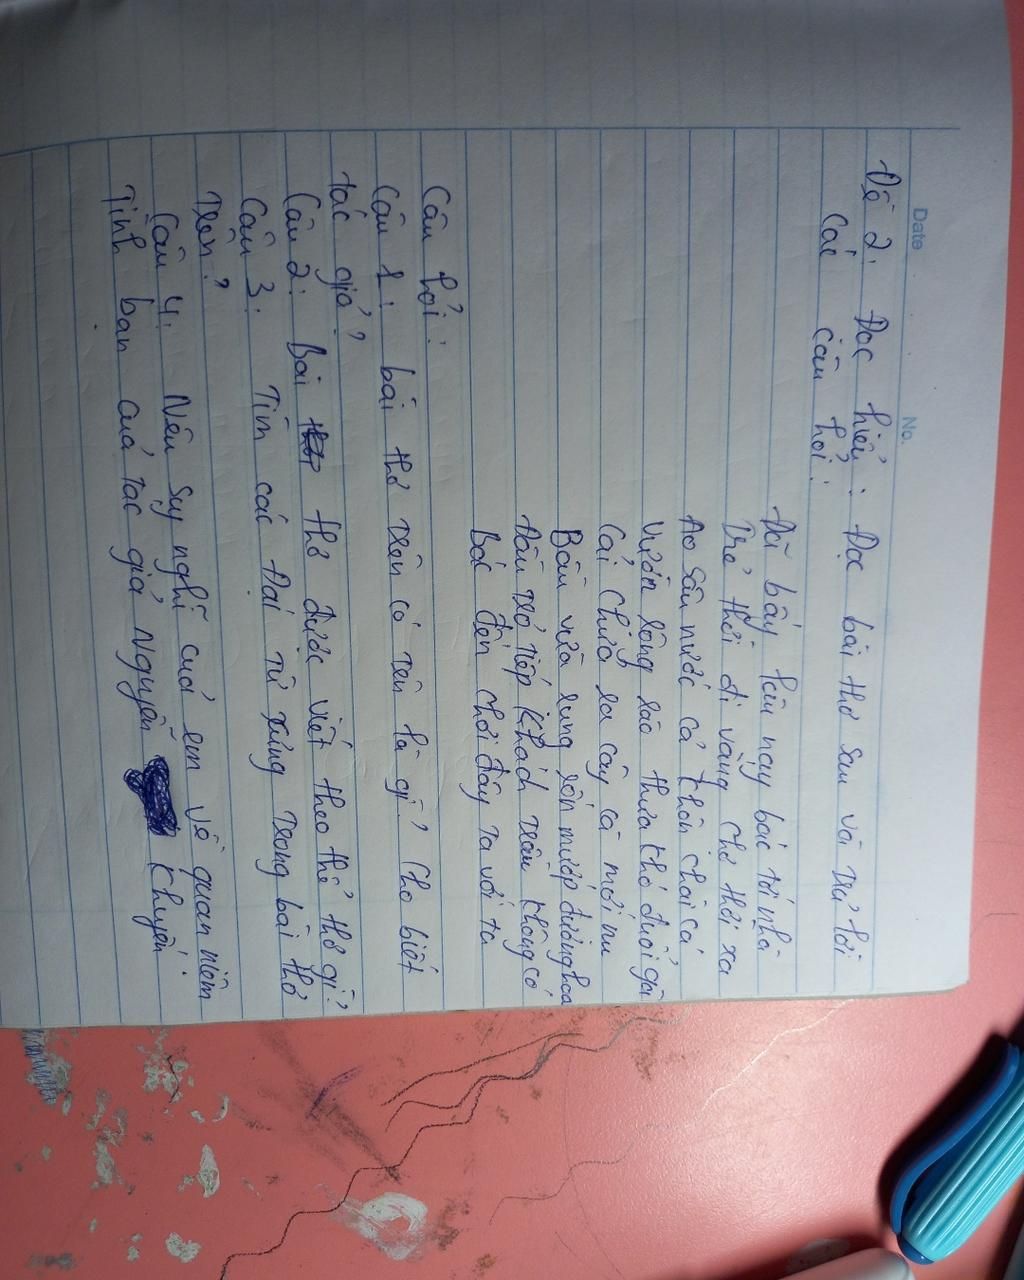 Date No.
Đề 2: Đọc hiểu: Đọc bài thơ sau và trả lời
các câu hỏi:
Đã bấy lâu nay bác tới nhà
Trẻ thời đi vắng chợ thời xa
Ao sâu nước cả khôn chài cá
Vườn rộng rào thưa khó đuổi gà
Cải chửa ra cây cà mới nụ
Bầu vừa rụng rốn mướp đương hoa
Đầu trò tiếp khách trầu không có
Bác đến chơi đây ta với ta
Câu hỏi:
Câu 1: bài thơ trên có tên là gì? Cho biết
tác giả?
Câu 2: Bài thơ được viết theo thể thơ gì?
Câu 3: Tìm các Đại từ xưng trong bài thơ
trên?
Câu 4: Nêu suy nghĩ của em về quan niệm
Tình bạn của tác giả Nguyễn Khuyến.